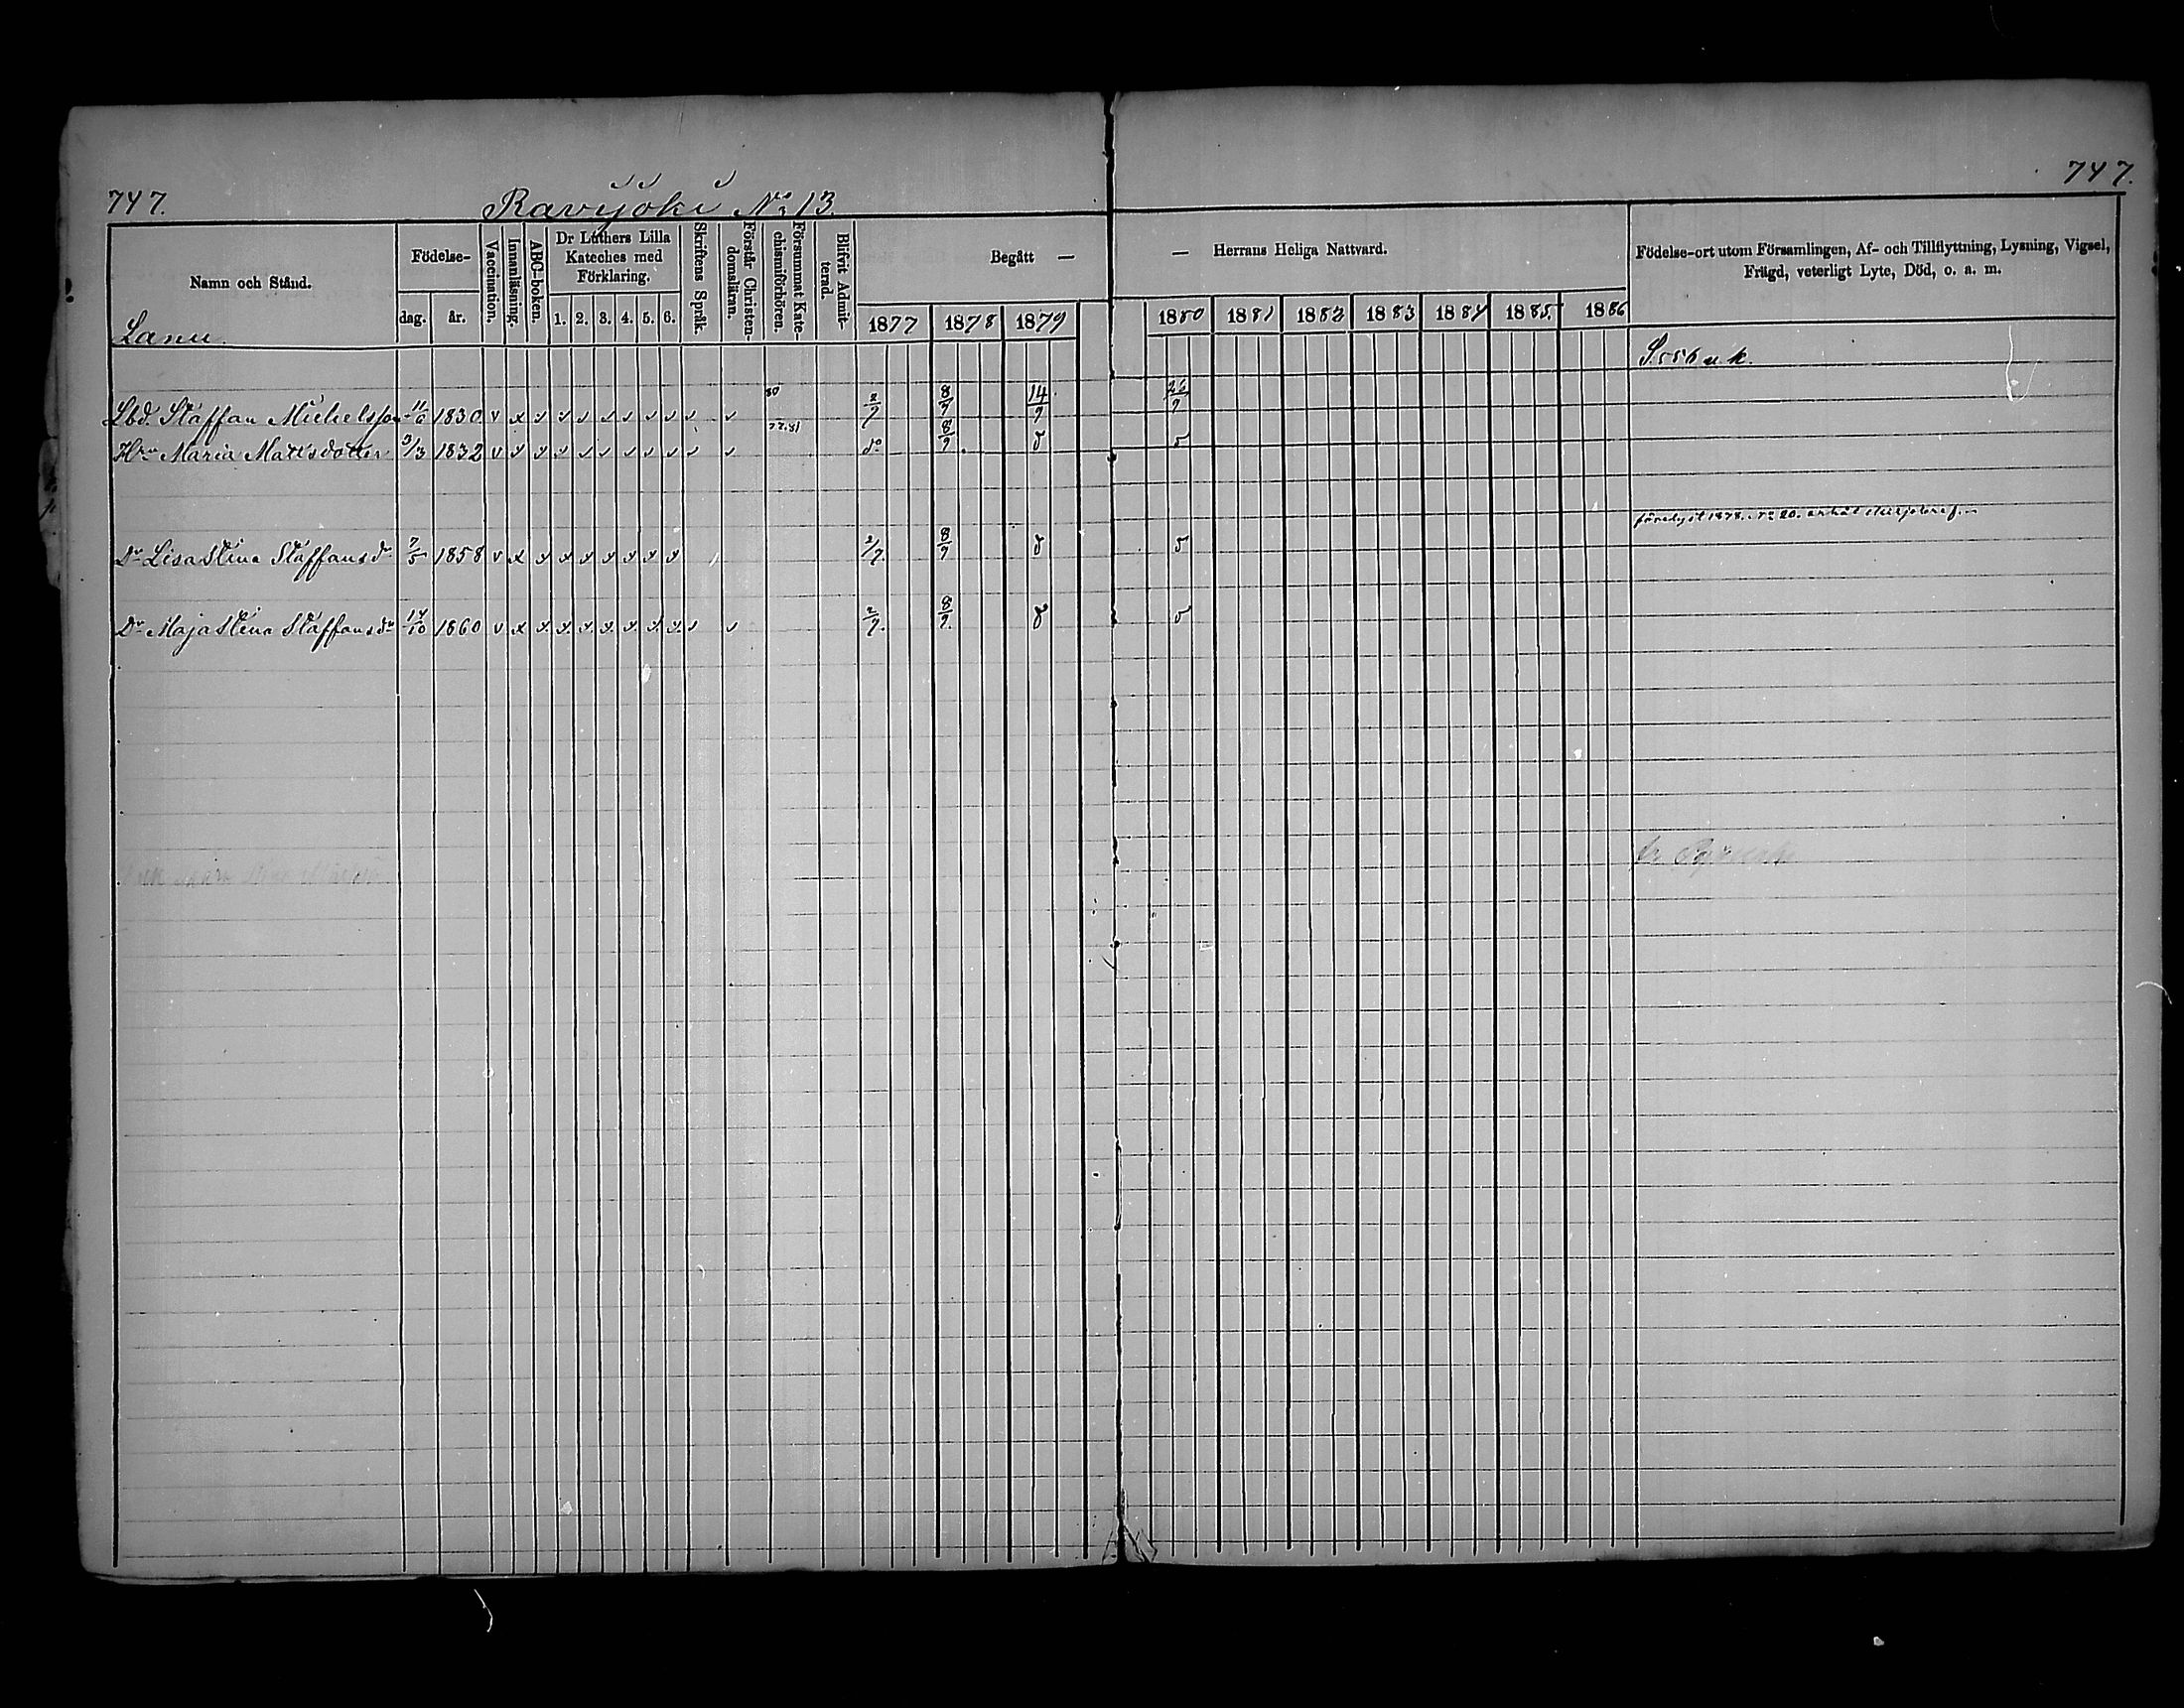 747. Ravijoki No 13. 747.
Namn och Stånd. Födelse- dag. år. Vaccination. Innanläsning. ABC-boken. Dr Luthers Lilla Kateches med Förklaring. 1. 2. 3. 4. 5. 6. Skriftens Språk. Förstår Christendomsläran. Försummat Katechismiförhören. Blifvit Admitterad. Begått — — Herrans Heliga Nattvard. Födelse-ort utom Församlingen, Af- och Tillflyttning, Lysning, Vigsel, Frägd, veterligt Lyte, Död, o. a. m.
1877 1878 1879 1880 1881 1882 1883 1884 1885. 1886
Lanu.
S. 556 u k.
80
Lbd. Staffan Michelsson 11/6 1830. v x v v v v v v v v v 2/9 8/9 14/9 26/9
77.81
Hru Maria Mattsdotter 3/3 1832 v v v v v v v v v v v do 8/9. δ δ
Dr Lisa Stina Staffansdr 7/5 1858 v x v x x x x x x 2/9. 8/9 δ δ
Dr Maja Stina Staffansdr 14/10 1860 v x x. x. x. x. x. x. x. v v 2/9. 8/9. δ δ